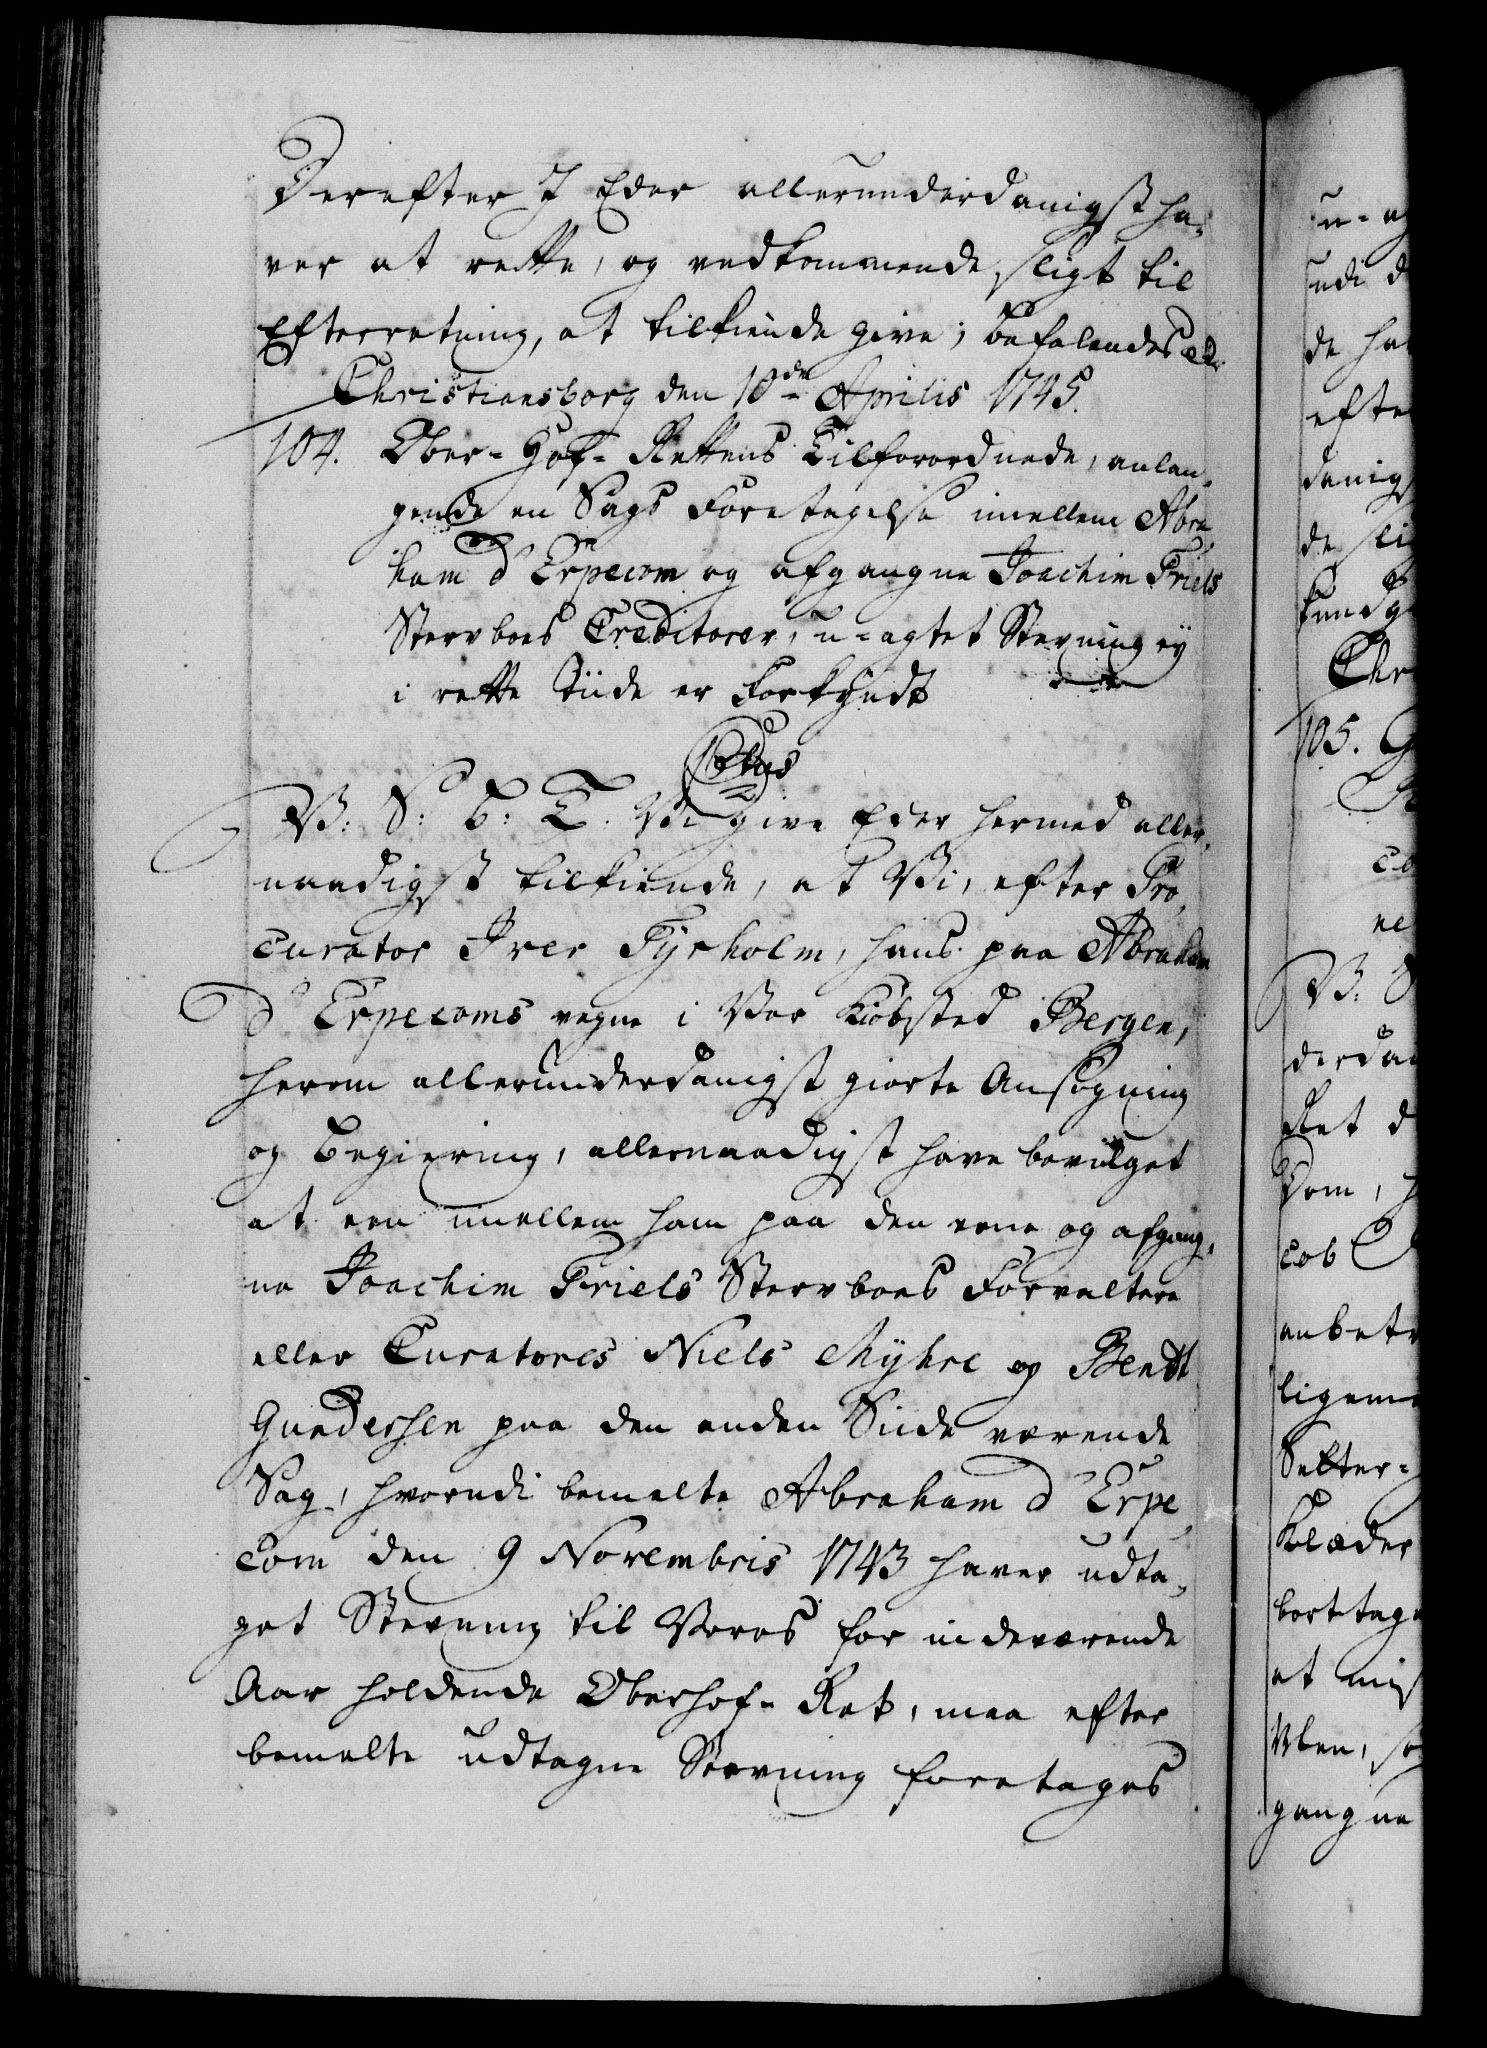 Derefter I Eder allerunderdanigst ha-
ver at rette, og vedkommende sligt til
Efterretning, at tilkiende give; befalendes etc.
Christiansborg den 10de Aprilis 1745.
104. Ober-Hof-Rettens Tilforordnede, anlan-
gende en Sags Foretagelse imellem Abra-
ham d'Erpecom og afgangne Joachim Friels
Stervboes Creditorer, u-agtet Stevning ey
i rette Tiide er Forkyndt
V: S: b: T. Vi give Eder hermed aller-
naadigst tilkiende, at Vi, efter Pro-
curator Iver Fyrholm, hans paa Abraham
d'Erpecoms vegne i Vor Kiøbsted Bergen,
herom allerunderdanigst giorte Ansøgning
og Begiering, allernaadigst have bevilget
at een imellem ham paa den eene og afgang-
ne Joachim Friels Stervboes Forvaltere
eller Curatores Niels Myhre og Bendt
Gundersen paa den anden Siide værende
Sag, hvorudi bemelte Abraham d'Erpe-
com den 9 Novembris 1743 haver udta-
get Stevning til Vores for indeværende
Aar holdende Oberhof-Ret, maa efter
bemelte udtagne Stevning foretages
u-ag
udi d
de ha
efte
danig
de sli
kundg
Chr
105. G
V: S
derda
Ret d
Dom, h
cob
anbetr
ligem
Sælter-
Klæder
borttag
at mis
gangne